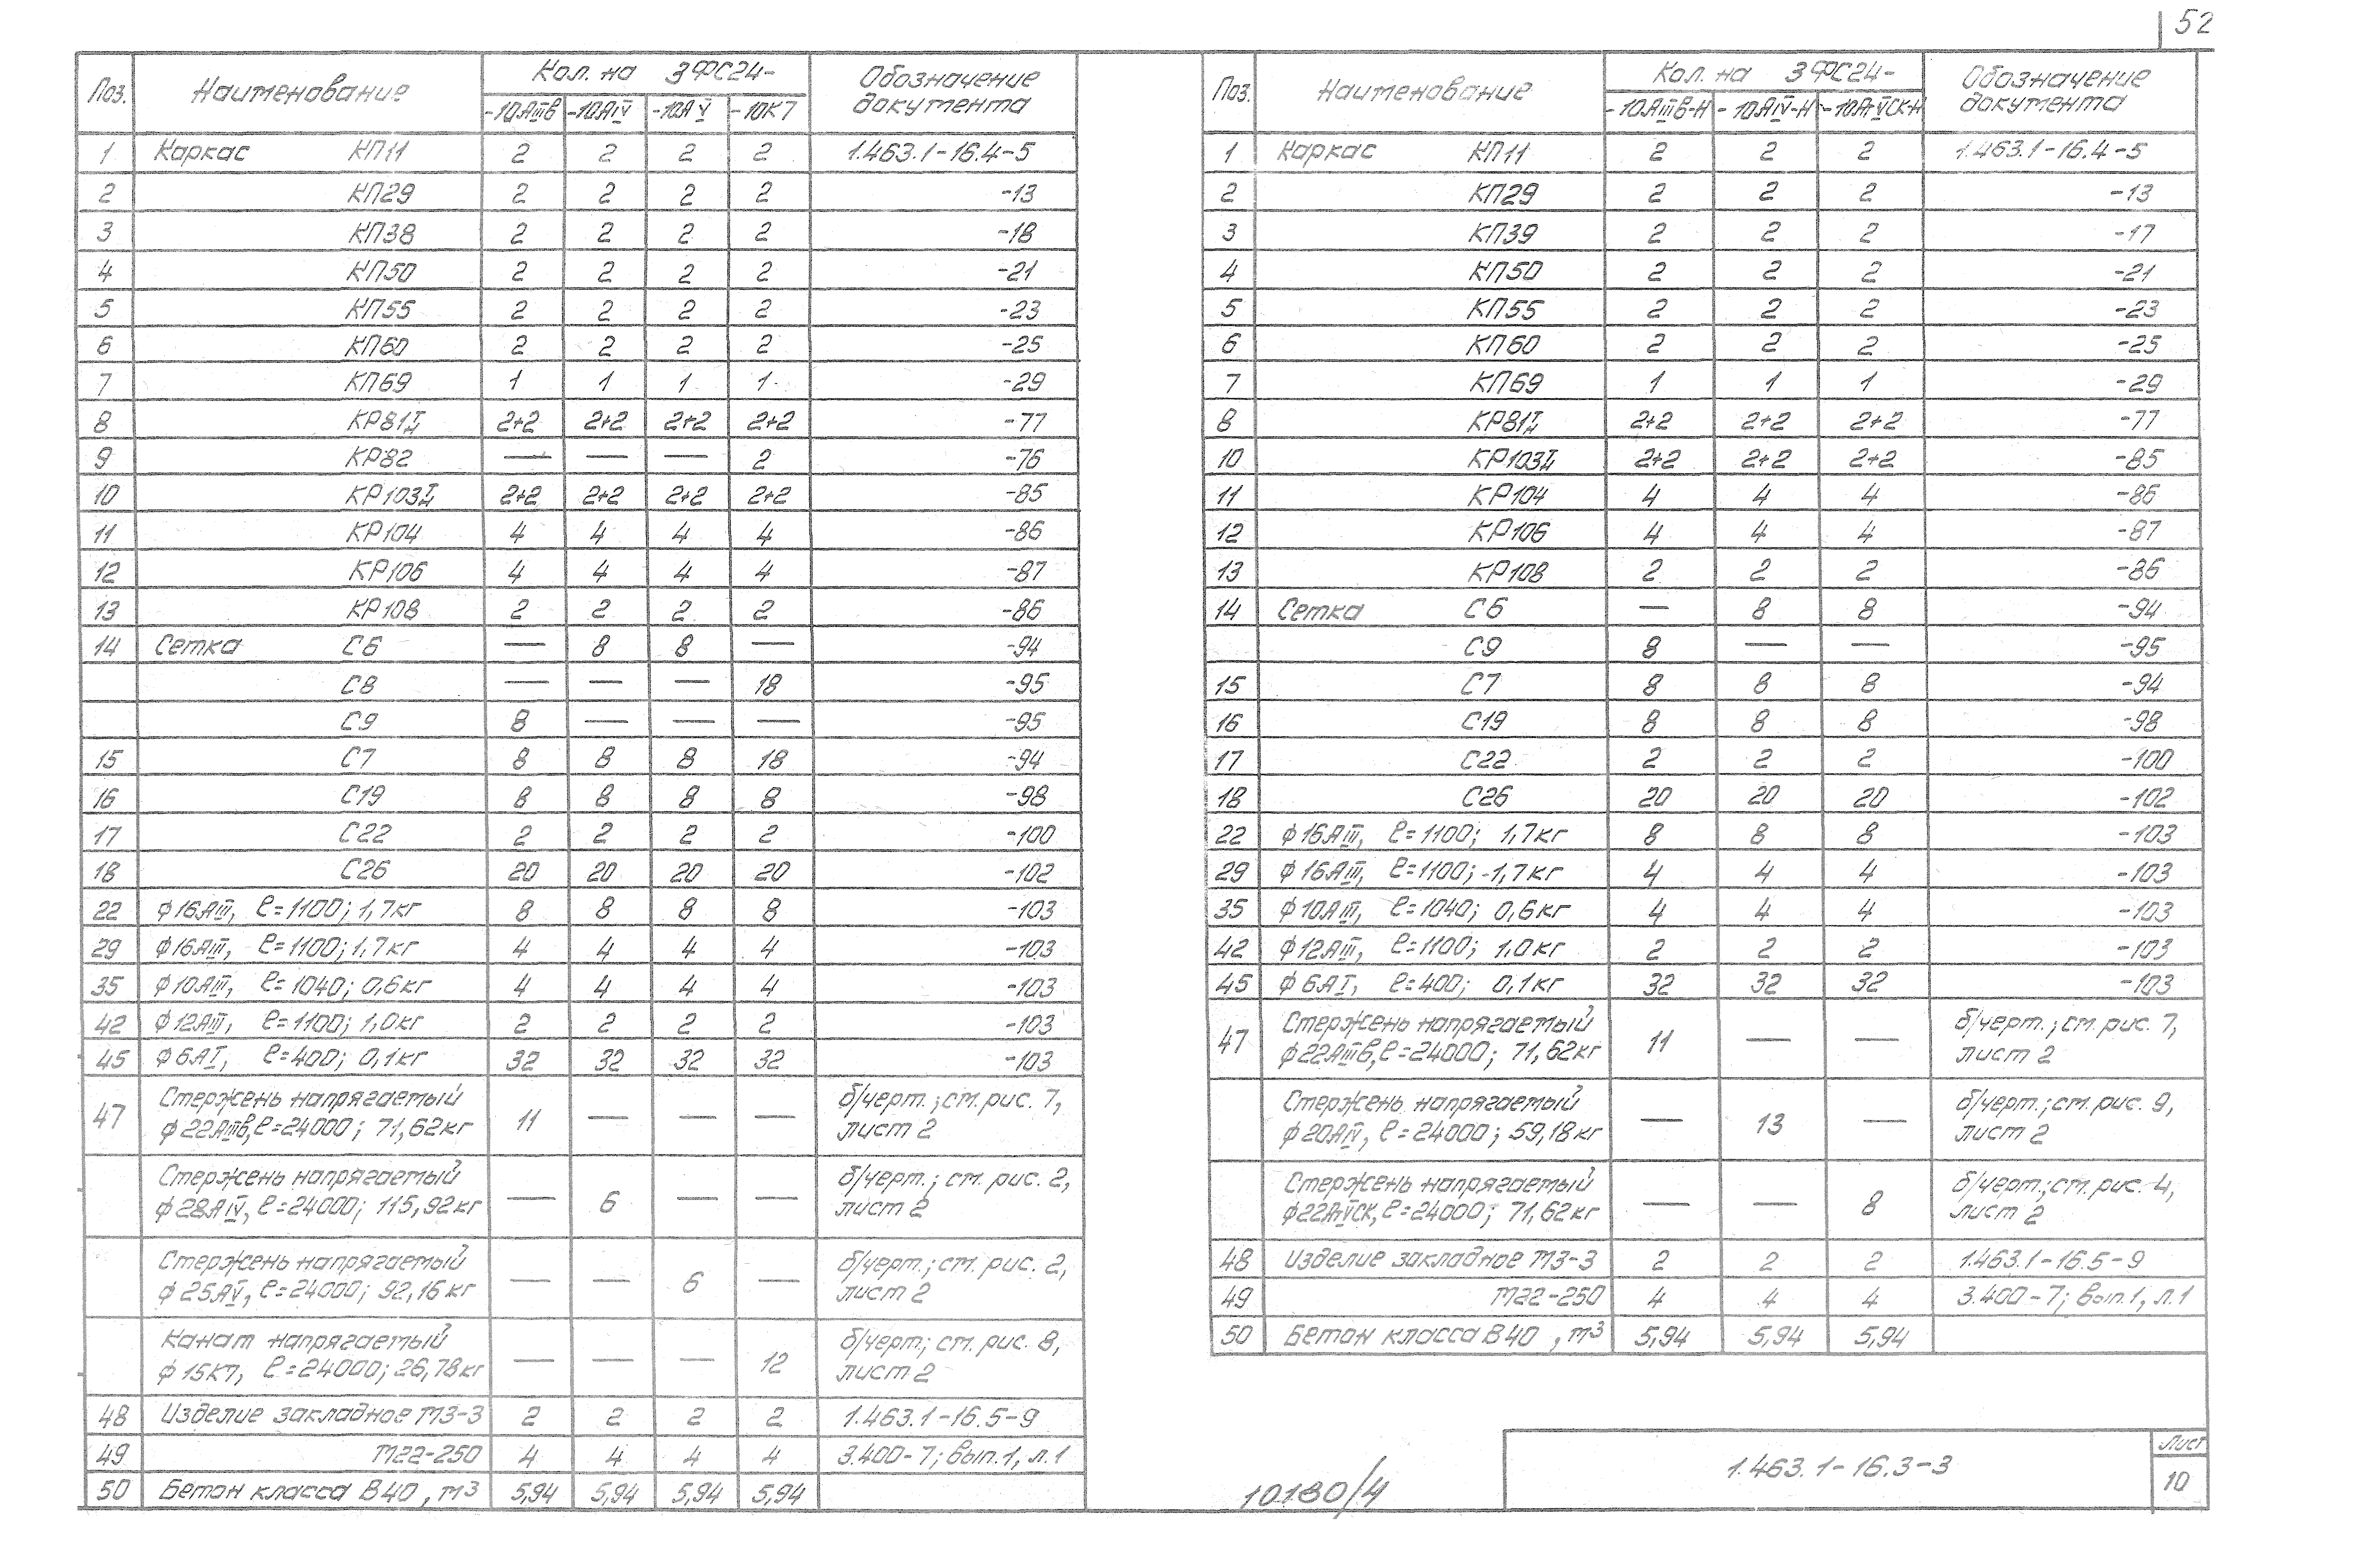 52
Поз. Наименование Кол. на 3ФС24- Обозначение документа
-10АIIIв -10АIV -10АV -10К7
1 Каркас КП11 2 2 2 2 1.463.1-16.4-5
2 КП29 2 2 2 2 -13
3 КП38 2 2 2 2 -18
4 КП50 2 2 2 2 -21
5 КП55 2 2 2 2 -23
6 КП60 2 2 2 2 -25
7 КП69 1 1 1 1 -29
8 КР81 I/II 2+2 2+2 2+2 2+2 -77
9 КР82 — — — 2 -76
10 КР103 I/II 2+2 2+2 2+2 2+2 -85
11 КР104 4 4 4 4 -86
12 КР106 4 4 4 4 -87
13 КР108 2 2 2 2 -86
14 Сетка С6 — 8 8 — -94
С8 — — — 18 -95
С9 8 — — — -95
15 С7 8 8 8 18 -94
16 С19 8 8 8 8 -98
17 С22 2 2 2 2 -100
18 С26 20 20 20 20 -102
22 ф16АIII, ℓ=1100; 1,7кг 8 8 8 8 -103
29 ф16АIII, ℓ=1100; 1,7кг 4 4 4 4 -103
35 ф10АIII, ℓ=1040; 0,6кг 4 4 4 4 -103
42 ф12АIII, ℓ=1100; 1,0кг 2 2 2 2 -103
45 ф6АI, ℓ=400; 0,1кг 32 32 32 32 -103
47 Стержень напрягаемый
ф22АIIIв, ℓ=24000; 71,62кг 11 — — — б/черт.; см. рис. 7, лист 2
Стержень напрягаемый
ф28АIV, ℓ=24000; 115,92кг — 6 — — б/черт.; см. рис. 2, лист 2
Стержень напрягаемый
ф25АV, ℓ=24000; 92,16кг — — 6 — б/черт.; см. рис. 2, лист 2
Канат напрягаемый
ф15К7, ℓ=24000; 26,78кг — — — 12 б/черт; см. рис. 8, лист 2
48 Изделие закладное М3-3 2 2 2 2 1.463.1-16.5-9
49 М22-250 4 4 4 4 3.400-7; вып.1, л.1
50 Бетон класса В40, м3 5,94 5,94 5,94 5,94
Поз. Наименование Кол. на 3ФС24- Обозначение документа
-10АIIIв-Н -10АIV-Н -10АтVСК-Н
1 Каркас КП11 2 2 2 1.463.1-16.4-5
2 КП29 2 2 2 -13
3 КП39 2 2 2 -17
4 КП50 2 2 2 -21
5 КП55 2 2 2 -23
6 КП60 2 2 2 -25
7 КП69 1 1 1 -29
8 КР81 I/II 2+2 2+2 2+2 -77
10 КР103 I/II 2+2 2+2 2+2 -85
11 КР104 4 4 4 -86
12 КР106 4 4 4 -87
13 КР108 2 2 2 -86
14 Сетка С6 — 8 8 -94
С9 8 — — -95
15 С7 8 8 8 -94
16 С19 8 8 8 -98
17 С22 2 2 2 -100
18 С26 20 20 20 -102
22 ф16АIII, ℓ=1100; 1,7кг 8 8 8 -103
29 ф16АIII, ℓ=1100; 1,7кг 4 4 4 -103
35 ф10АIII, ℓ=1040; 0,6кг 4 4 4 -103
42 ф12АIII, ℓ=1100; 1,0кг 2 2 2 -103
45 ф6АI, ℓ=400; 0,1кг 32 32 32 -103
47 Стержень напрягаемый
ф22АIIIв, ℓ=24000; 71,62кг 11 — — б/черт.; см. рис. 7, лист 2
Стержень напрягаемый
ф20АIV, ℓ=24000; 59,18кг — 13 — б/черт.; см. рис. 9, лист 2
Стержень напрягаемый
ф22АтVСК, ℓ=24000; 71,62кг — — 8 б/черт.; см. рис. 4, лист 2
48 Изделие закладное М3-3 2 2 2 1.463.1-16.5-9
49 М22-250 4 4 4 3.400-7; вып.1, л.1
50 Бетон класса В40, м3 5,94 5,94 5,94
10180/4
1.463.1-16.3-3
Лист
10